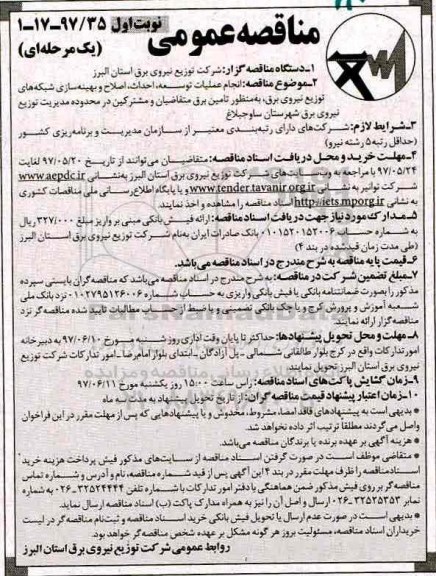 مناقصه عمومی
نوبت اول ۹۷/۳۵-۱۷-۱
(یک مرحله‌ای)
۱-دستگاه مناقصه گزار: شرکت توزیع نیروی برق استان البرز
۲-موضوع مناقصه: انجام عملیات توسعه، احداث، اصلاح و بهینه‌سازی شبکه‌های
توزیع نیروی برق، به‌منظور تامین برق متقاضیان و مشترکین در محدوده مدیریت توزیع
نیروی برق شهرستان ساوجبلاغ
۳-شرایط لازم: شرکت‌های دارای رتبه‌بندی معتبر از سازمان مدیریت و برنامه‌ریزی کشور
(حداقل رتبه ۵ رشته نیرو)
۴-مهلت خرید و محل دریافت اسناد مناقصه: متقاضیان می‌توانند از تاریخ ۹۷/۰۵/۲۰ لغایت
۹۷/۰۵/۲۴ با مراجعه به وب سایت‌های شرکت توزیع نیروی برق استان البرز به‌نشانی www.aepdc.ir
شرکت توانیر به‌نشانی www.tender.tavanir.org.ir و یا پایگاه اطلاع‌رسانی ملی مناقصات کشوری
به نشانی http://iets.mporg.ir اسناد مناقصه را مشاهده و اخذ نمایند.
۵-مدارک مورد نیاز جهت دریافت اسناد مناقصه: ارائه فیش بانکی مبنی بر واریز مبلغ ۳۲۷/۰۰۰ ریال
به شماره حساب ۰۱۰۱۵۲۰۱۵۲۰۰۶ بانک صادرات ایران به‌نام شرکت توزیع نیروی برق استان البرز
(طی مدت زمان قیدشده در بند ۴)
۶-قیمت پایه مناقصه به شرح مندرج در اسناد مناقصه می‌باشد.
۷-مبلغ تضمین شرکت در مناقصه: به شرح مندرج در اسناد مناقصه می‌باشد که مناقصه‌گران بایستی سپرده
مذکور را بصورت ضمانتنامه بانکی یا فیش بانکی واریزی به حساب شماره ۰۱۰۲۷۹۵۱۲۶۰۰۶ نزد بانک ملی
شعبه آموزش و پرورش کرج و یا چک بانکی تضمینی و یا ضبط از حساب مطالبات تایید شده مناقصه‌گر نزد
مناقصه گزار ارائه نمایند.
۸-مهلت و محل تحویل پیشنهادها: حداکثر تا پایان وقت اداری روز شنبه مورخ ۹۷/۰۶/۱۰ به دبیرخانه
امور تدارکات واقع در کرج بلوار طالقانی شمالی - پل آزادگان - ابتدای بلوار امام‌رضا - امور تدارکات شرکت توزیع
نیروی برق استان البرز تحویل نمایند.
۹-زمان گشایش پاکت‌های اسناد مناقصه: راس ساعت ۱۵:۰۰ روز یکشنبه مورخ ۹۷/۰۶/۱۱
۱۰-زمان اعتبار پیشنهاد قیمت مناقصه گران: از تاریخ تحویل پیشنهاد به مدت سه ماه
* بدیهی است به پیشنهادهای فاقد امضا، مشروط، مخدوش و یا پیشنهادهایی که پس از مهلت مقرر در این فراخوان
واصل می‌گردند مطلقا ترتیب اثر داده نخواهد شد.
* هزینه آگهی بر عهده برنده یا برندگان مناقصه می‌باشد.
* متقاضی موظف است در صورت گرفتن اسناد مناقصه از سایت‌های مذکور فیش پرداخت هزینه خرید
اسناد مناقصه را ظرف مهلت مقرر در بند ۴ این آگهی پس از قید شماره مناقصه، نام و آدرس و شماره تماس
مناقصه‌گر بر روی فیش مذکور ضمن هماهنگی با دفتر امور تدارکات با شماره تلفن ۳۲۵۲۴۴۴۴-۰۲۶ به شماره
نمابر ۳۲۵۲۵۳۵۳-۰۲۶ ارسال و اصل آن را نیز به همراه مدارک پاکت (ب) اسناد مناقصه ارسال نماید.
* بدیهی است در صورت عدم ارسال یا تحویل فیش بانکی خرید اسناد مناقصه و ثبت نام مناقصه‌گر در لیست
خریداران اسناد مناقصه، مسئولیت بروز هر گونه مشکل بر عهده شخص مناقصه‌گر خواهد بود.
روابط عمومی شرکت توزیع نیروی برق استان البرز